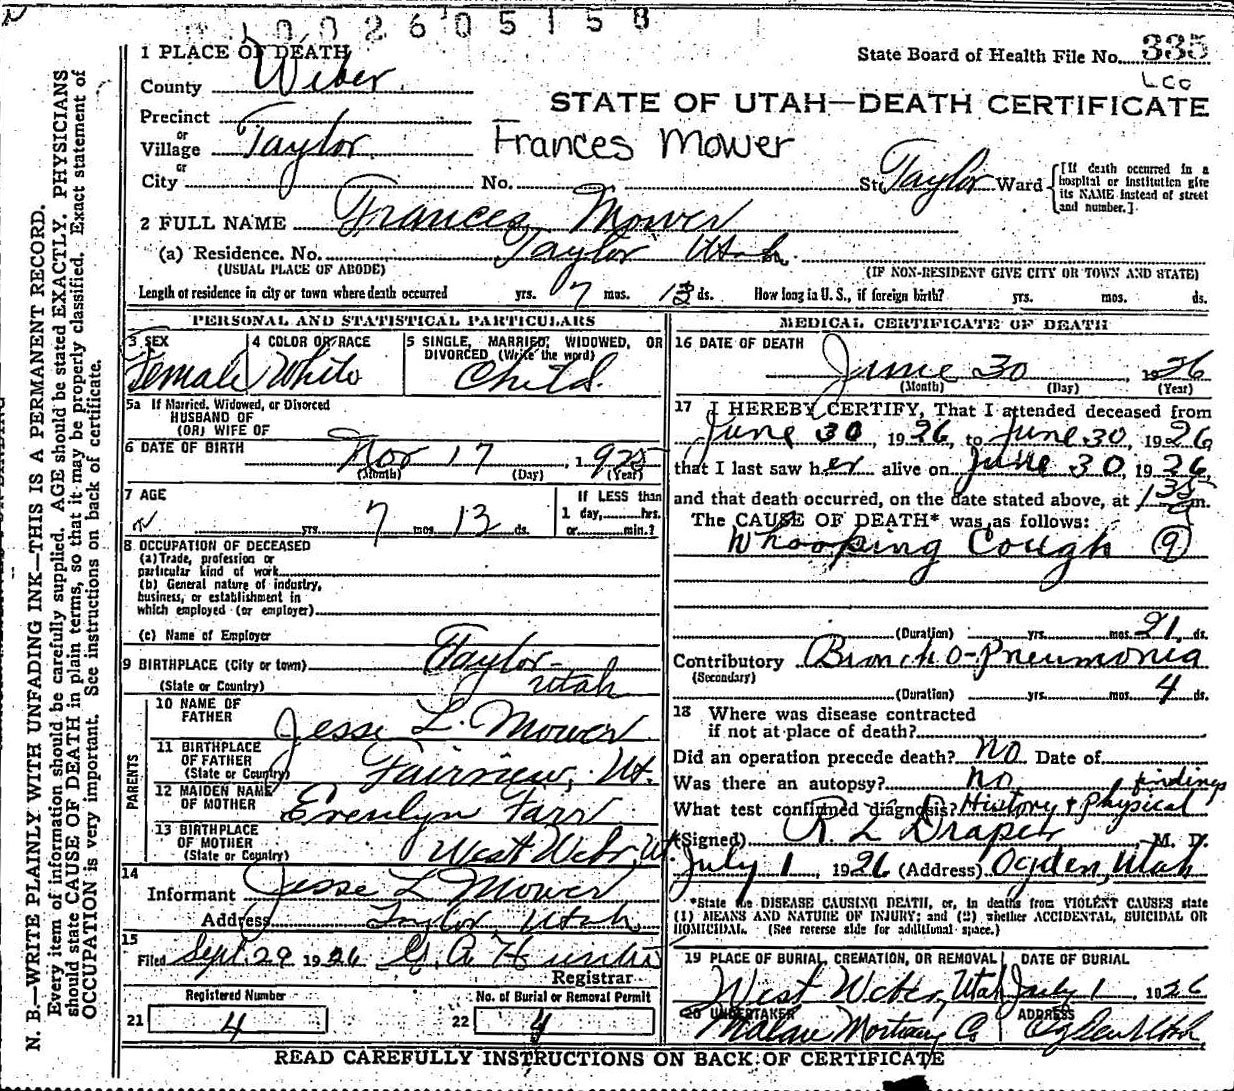 1 0 0 2 6 0 5 1 5 8
1 PLACE OF DEATH
State Board of Health File No. 335
County Weber
LCO
STATE OF UTAH—DEATH CERTIFICATE
Precinct
or
Village Taylor
Frances Mower
or
City No. St. Taylor Ward
[If death occurred in a hospital or institution give its NAME instead of street and number.]
2 FULL NAME Frances Mower
(a) Residence. No. Taylor Utah
(USUAL PLACE OF ABODE) (IF NON-RESIDENT GIVE CITY OR TOWN AND STATE)
Length of residence in city or town where death occurred yrs. 7 mos. 13 ds. How long in U. S., if foreign birth? yrs. mos. ds.
PERSONAL AND STATISTICAL PARTICULARS
3 SEX
Female
4 COLOR OR RACE
White
5 SINGLE, MARRIED, WIDOWED, OR DIVORCED (Write the word)
Child
5a If Married, Widowed, or Divorced
HUSBAND OF
(OR) WIFE OF
6 DATE OF BIRTH Nov 17, 1925
(Month) (Day) (Year)
7 AGE
yrs. 7 mos. 13 ds.
If LESS than
1 day, hrs.
or min.?
8 OCCUPATION OF DECEASED
(a) Trade, profession or
particular kind of work
(b) General nature of industry,
business, or establishment in
which employed (or employer)
(c) Name of Employer
9 BIRTHPLACE (City or town) Taylor
(State or Country) Utah
PARENTS
10 NAME OF
FATHER Jesse L. Mower
11 BIRTHPLACE
OF FATHER
(State or Country) Fairview, Ut.
12 MAIDEN NAME
OF MOTHER Evenlyn Farr
13 BIRTHPLACE
OF MOTHER
(State or Country) West Weber, Ut.
14
Informant Jesse L Mower
Address Taylor, Utah
15
Filed Sept. 29 1926 G. A. Hunter
Registrar
Registered Number
21 4
No. of Burial or Removal Permit
22 4
MEDICAL CERTIFICATE OF DEATH
16 DATE OF DEATH
June 30, 1926
(Month) (Day) (Year)
17 I HEREBY CERTIFY, That I attended deceased from
June 30, 1926, to June 30, 1926,
that I last saw her alive on June 30, 1926,
and that death occurred, on the date stated above, at 1 35 a m.
The CAUSE OF DEATH* was as follows:
Whooping Cough 9
(Duration) yrs. mos. 21 ds.
Contributory Broncho-Pneumonia
(Secondary)
(Duration) yrs. mos. 4 ds.
18 Where was disease contracted
if not at place of death?
Did an operation precede death? no Date of
Was there an autopsy? no
What test confirmed diagnosis? History + Physical findings
(Signed) R L Draper M. D.
July 1, 1926 (Address) Ogden, Utah
*State the DISEASE CAUSING DEATH, or, in deaths from VIOLENT CAUSES state
(1) MEANS AND NATURE OF INJURY; and (2) whether ACCIDENTAL, SUICIDAL OR
HOMICIDAL. (See reverse side for additional space.)
19 PLACE OF BURIAL, CREMATION, OR REMOVAL
West Weber, Utah
DATE OF BURIAL
July 1, 1926
20 UNDERTAKER
Malan Mortuary Co
ADDRESS
Ogden Utah
READ CAREFULLY INSTRUCTIONS ON BACK OF CERTIFICATE
N. B.—WRITE PLAINLY WITH UNFADING INK—THIS IS A PERMANENT RECORD.
Every item of information should be carefully supplied. AGE should be stated EXACTLY. PHYSICIANS
should state CAUSE OF DEATH in plain terms, so that it may be properly classified. Exact statement of
OCCUPATION is very important. See instructions on back of certificate.